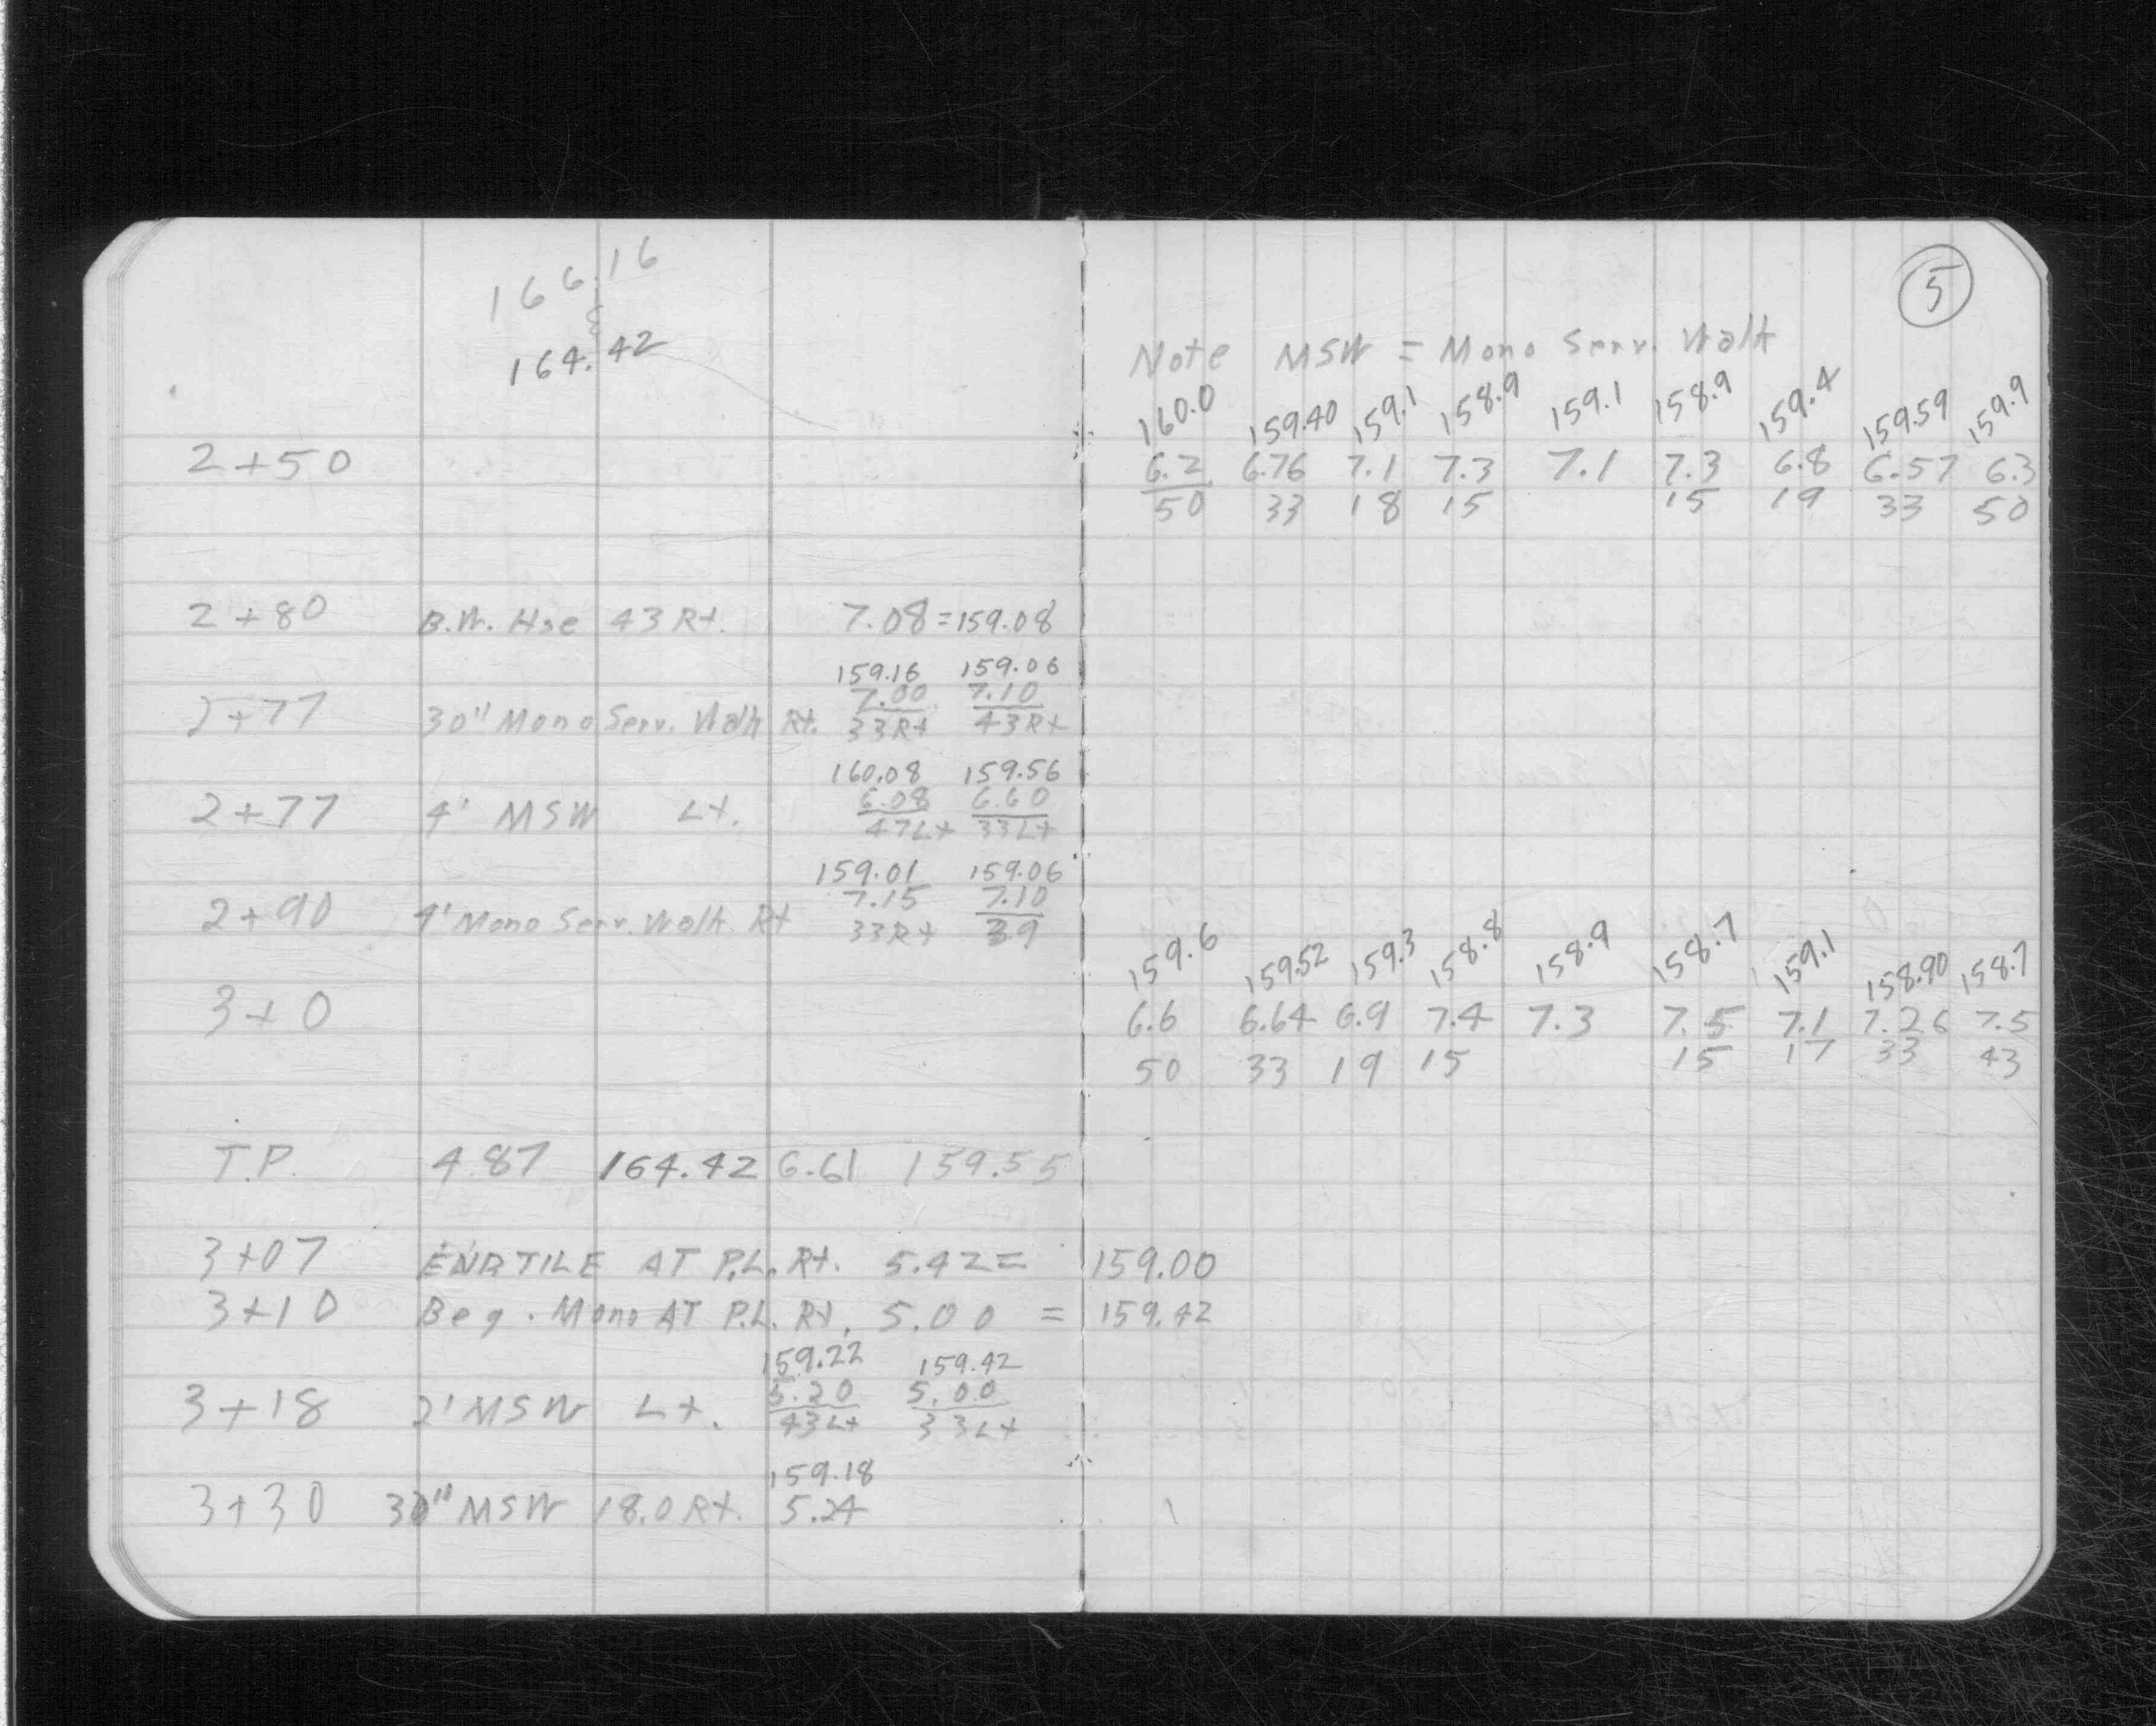 5
166.16
164.42
Note MSW = Mono Serv. Walk
160.0 159.40 159.1 158.9 159.1 158.9 159.4 159.59 159.9
2+50 6.2 6.76 7.1 7.3 7.1 7.3 6.8 6.57 6.3
50 33 18 15 15 19 33 50
2+80 B.W. Hse 43 Rt. 7.08=159.08
159.16 159.06
7.00 7.10
2+77 30" Mono Serv. Walk Rt. 33Rt 43Rt
160.08 159.56
6.08 6.60
2+77 4' MSW Lt. 47Lt 33Lt
159.01 159.06
7.15 7.10
2+90 4' Mono Serv. Walk Rt 33Rt 39
159.6 159.52 159.3 158.8 158.9 158.7 159.1 158.90 158.7
3+0 6.6 6.64 6.9 7.4 7.3 7.5 7.1 7.26 7.5
50 33 19 15 15 17 33 43
T.P. 4.87 164.42 6.61 159.55
3+07 END TILE AT P.L. Rt. 5.42= 159.00
3+10 Beg. Mono AT P.L. Rt. 5.00 = 159.42
159.22 159.42
5.20 5.00
3+18 2' MSW Lt. 43Lt 33Lt
159.18
3+30 30" MSW 18.0 Rt. 5.24